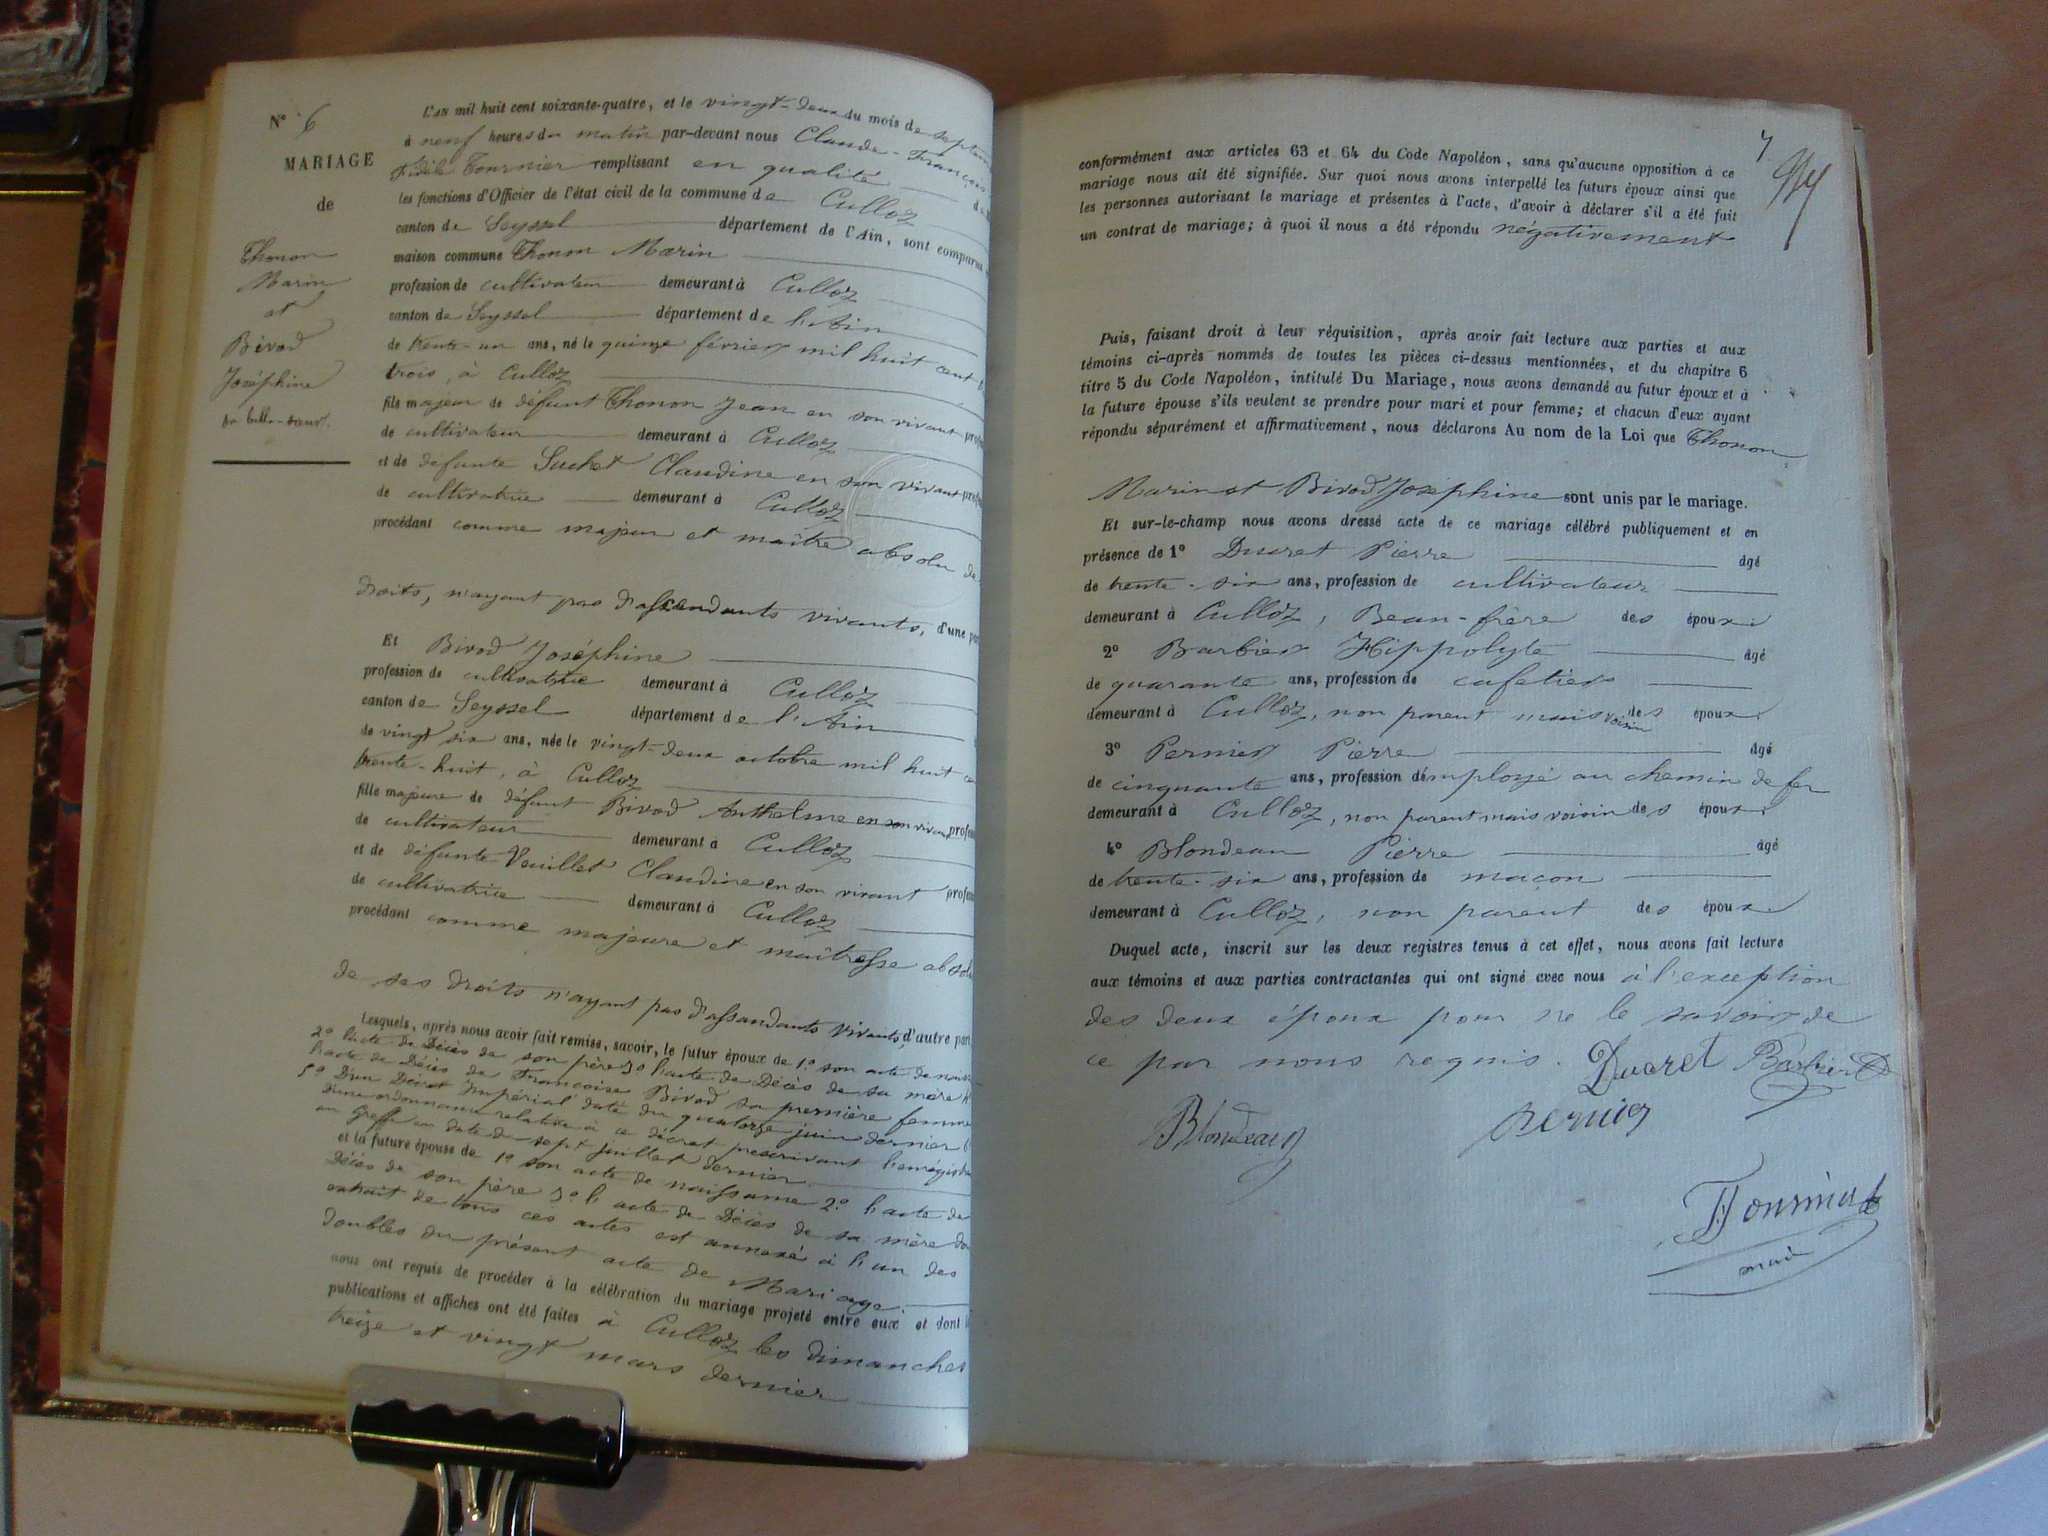 N° 6
MARIAGE
de
Thonon
Marin
et
Bivod
Joséphine
sa belle-soeur.
L'AN mil huit cent soixante-quatre, et le vingt-deux du mois de septem
à neuf heures du matin par-devant nous Claude-François
Fidèle Tournier remplissant en qualité
les fonctions d'Officier de l'état civil de la commune de Culloz
canton de Seyssel département de l'Ain, sont comparus
maison commune Thonon Marin
profession de cultivateur demeurant à Culloz
canton de Seyssel département de l'Ain
de trente-un ans, né le quinze février mil huit cent t
trois, à Culloz
fils majeur de défunt Thonon Jean en son vivant prof
de cultivateur demeurant à Culloz
et de défunte Suchet Claudine en son vivant prof
de cultivatrice demeurant à Culloz
procédant comme majeur et maître absolu de
droits, n'ayant pas d'assendants vivants, d'une par
Et Bivod Joséphine
profession de cultivatrice demeurant à Culloz
canton de Seyssel département de l'Ain
de vingt six ans, née le vingt-deux octobre mil huit c
trente-huit, à Culloz
fille majeure de défunt Bivod Anthelme en son vivant profes
de cultivateur demeurant à Culloz
et de défunte Vouillet Claudine en son vivant profes
de cultivatrice demeurant à Culloz
procédant comme majeure et maîtresse absol
de ses droits n'ayant pas d'assandants vivants, d'autre part
Lesquels, après nous avoir fait remise, savoir, le futur époux de 1° son acte de nais
2° l'acte de Décès de son père 3° l'acte de Décès de sa mère
l'acte de Décès de Françoise Bivod sa première femme
5° D'un Décret Impérial daté du quatorze juin dernier
d'une ordonnance relative à ce décret prescrivant l'enrégistr
au Greffe en date du sept juillet dernier.
et la future épouse de 1° son acte de naissance 2° l'acte de
Décès de son père 3° l'acte de Décès de sa mère do
extrait de tous ces actes est annexé à l'un des
doubles du présent acte de Mariage.
nous ont requis de procéder à la célébration du mariage projeté entre eux et dont l
publications et affiches ont été faites à Culloz les dimanches
treize et vingt mars dernier
7
conformément aux articles 63 et 64 du Code Napoléon, sans qu'aucune opposition à ce
mariage nous ait été signifiée. Sur quoi nous avons interpellé les futurs époux ainsi que
les personnes autorisant le mariage et présentes à l'acte, d'avoir à déclarer s'il a été fait
un contrat de mariage; à quoi il nous a été répondu négativement
Puis, faisant droit à leur réquisition, après avoir fait lecture aux parties et aux
témoins ci-après nommés de toutes les pièces ci-dessus mentionnées, et du chapitre 6
titre 5 du Code Napoléon, intitulé Du Mariage, nous avons demandé au futur époux et à
la future épouse s'ils veulent se prendre pour mari et pour femme; et chacun d'eux ayant
répondu séparément et affirmativement, nous déclarons Au nom de la Loi que Thonon
Marin et Bivod Joséphine sont unis par le mariage.
Et sur-le-champ nous avons dressé acte de ce mariage célébré publiquement et en
présence de 1° Ducret Pierre âgé
de trente-six ans, profession de cultivateur
demeurant à Culloz, Beau-frère des époux.
2° Barbier Hippolyte âgé
de quarante ans, profession de cafetier
demeurant à Culloz, non parent mais voisin des époux.
3° Pernier Pierre âgé
de cinquante ans, profession d'employé au chemin de fer
demeurant à Culloz, non parent mais voisin des époux.
4° Blondeau Pierre âgé
de trente-six ans, profession de maçon
demeurant à Culloz, non parent des époux.
Duquel acte, inscrit sur les deux registres tenus à cet effet, nous avons fait lecture
aux témoins et aux parties contractantes qui ont signé avec nous à l'exception
des deux époux pour ne le savoir de
ce par nous requis. Ducret Barbier
Blondeau Pernier
Tournier
maire